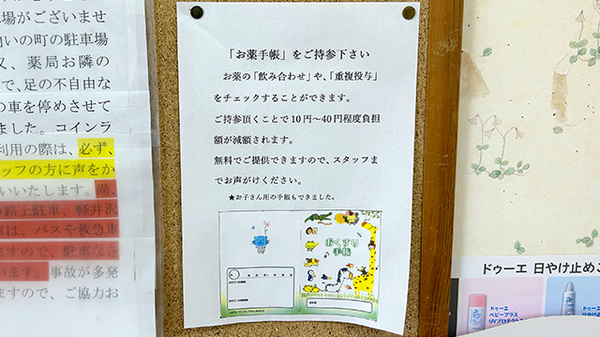 場がございませ
向いの町の駐車場
又、薬局お隣の
で、足の不自由な
の車を停めさせて
ました。コインラ
利用の際は、必ず、
ッフの方に声をか
いいたします。尚、
の路上駐車、軽井沢
車は、バスや救急車
ますので、駐車なさ
います。事故が多発
ますので、ご協力お
「お薬手帳」をご持参下さい
お薬の「飲み合わせ」や、「重複投与」
をチェックすることができます。
ご持参頂くことで10円~40円程度負担
額が減額されます。
無料でご提供できますので、スタッフま
でお声がけください。
★お子さん用の手帳もできました。
おくすり
手帳
ドゥーエ 日やけ止めこ
ドゥーエ
ベビープラス
UVプロテクト
ドゥーエ